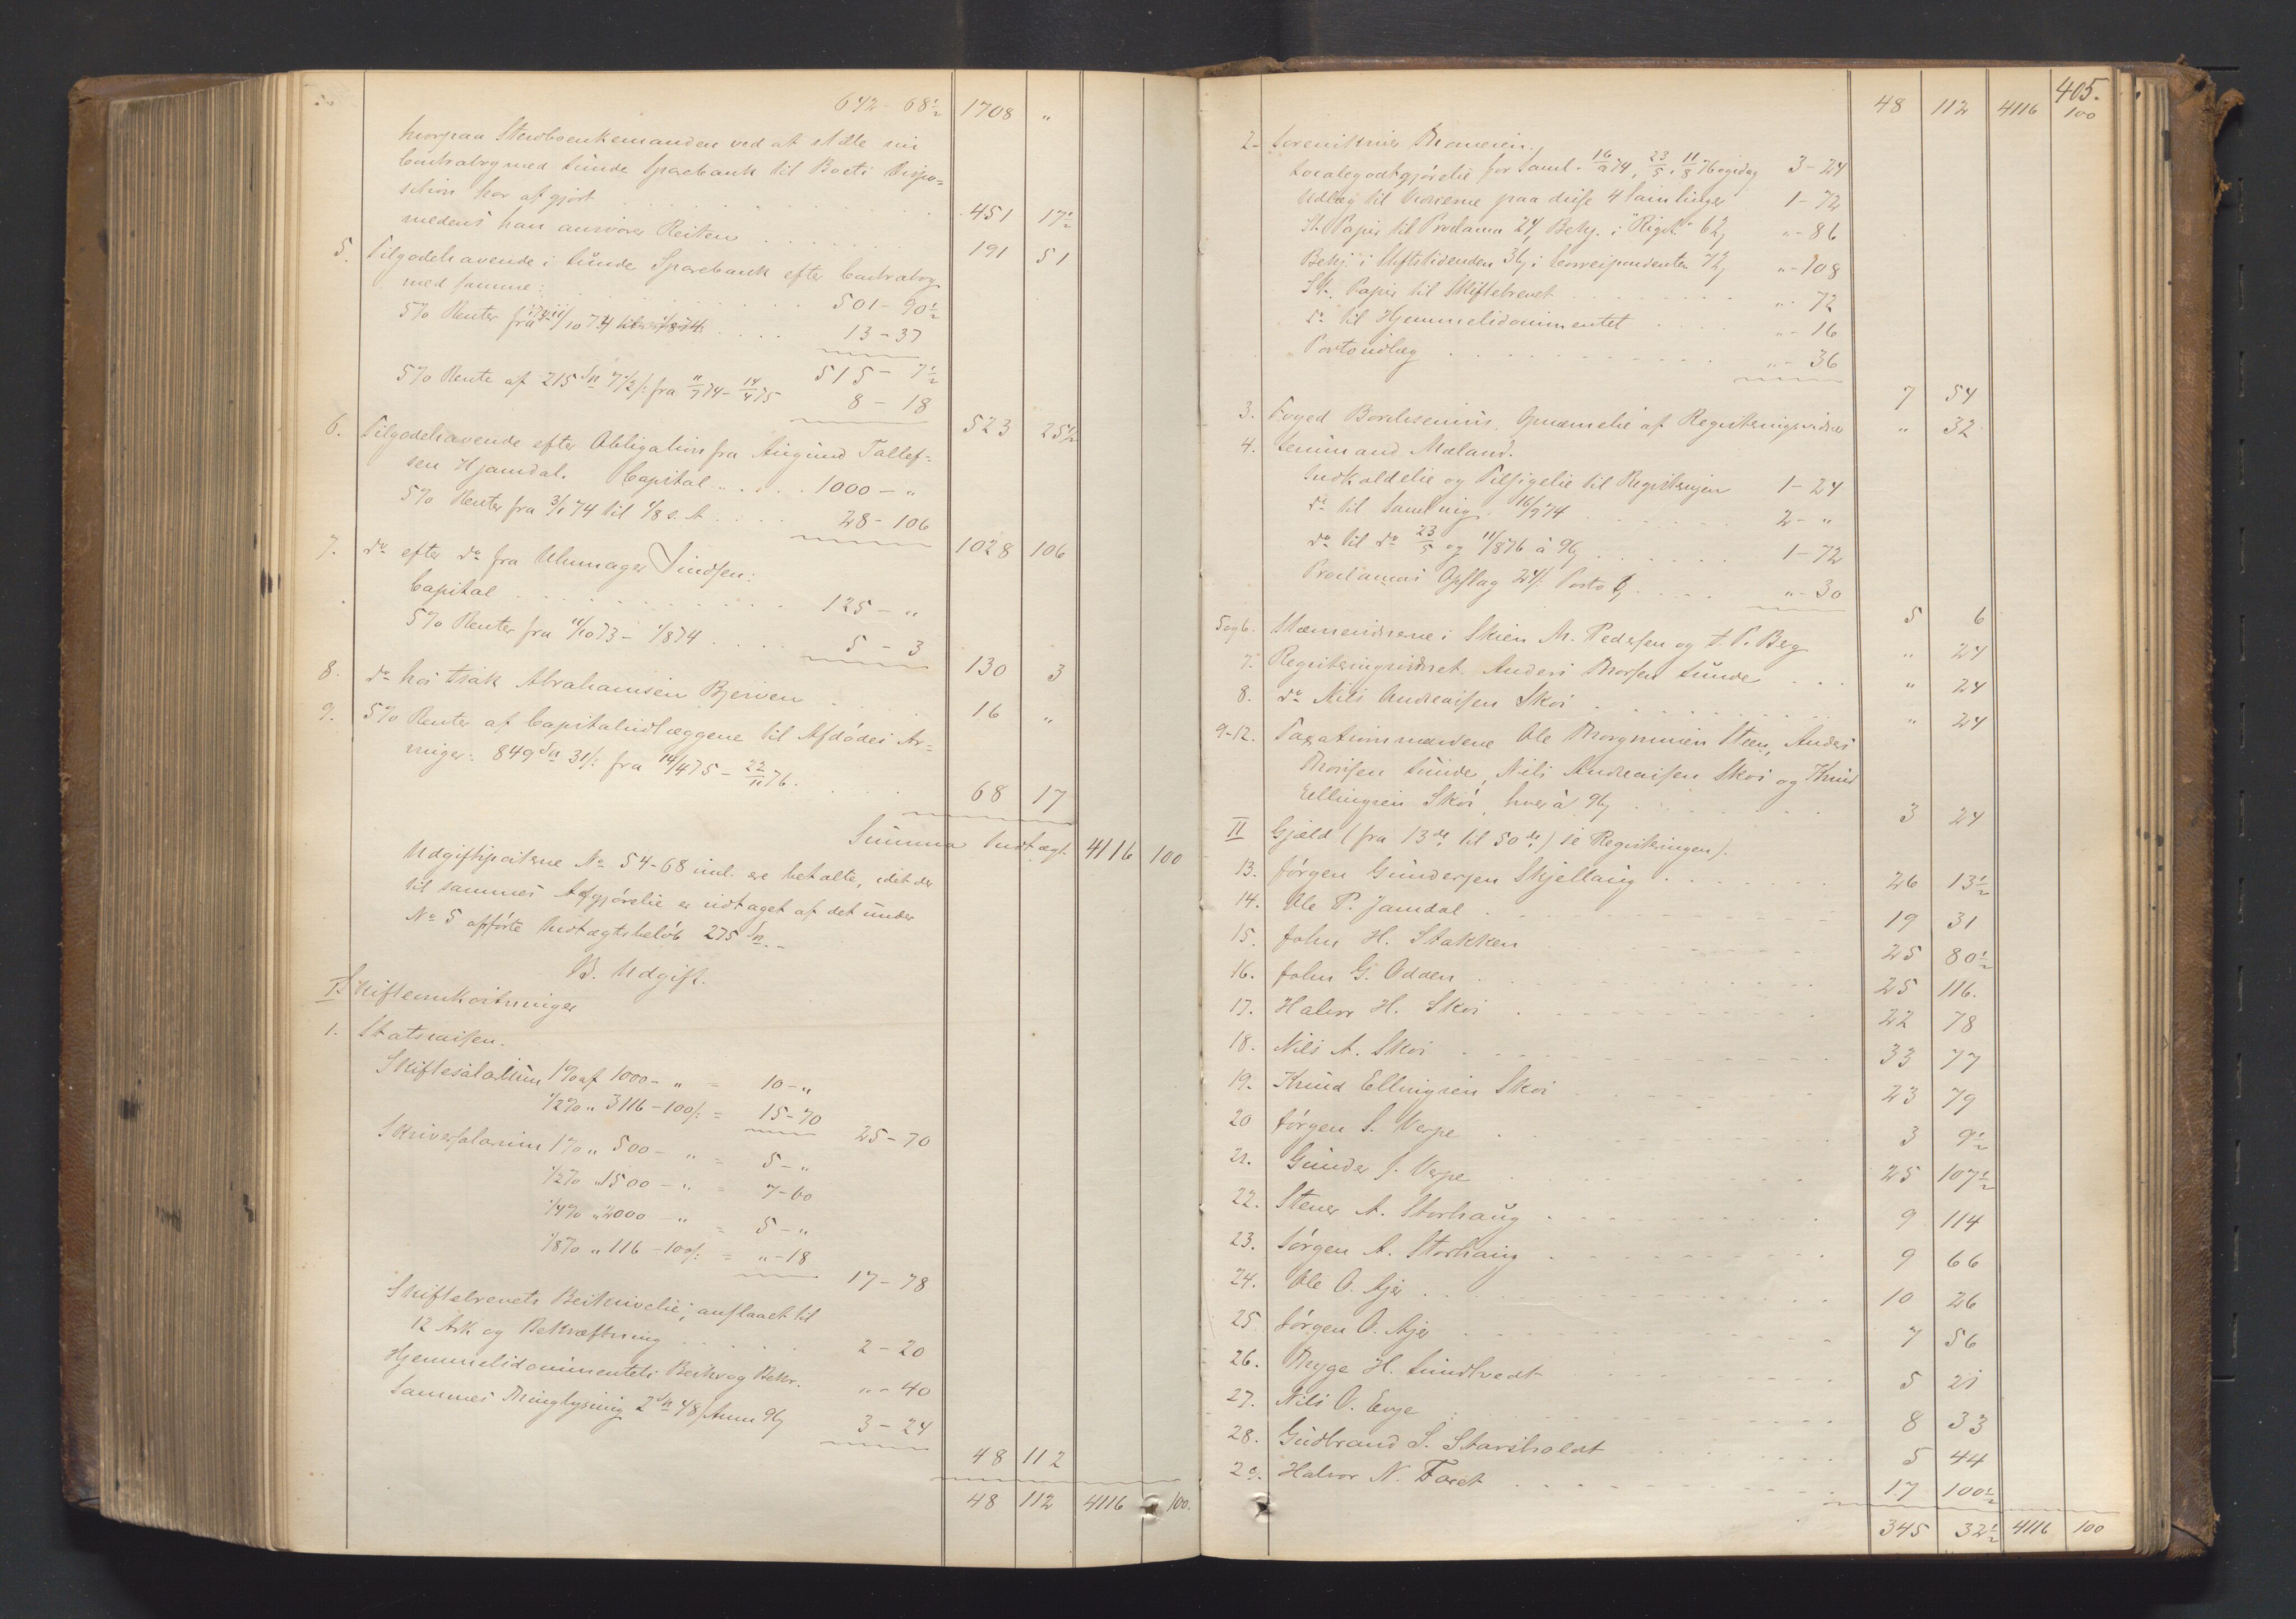 642 - 68½ 1708 "
hvorpaa Stervboenkemanden ved at stille sin
Contrabog med Lunde Sparebank til Boets Dispo=
sition har afgjort 451 17½
medens han ansvarer Resten 191 51
5. Tilgodehavende i Lunde Sparebank efter Contrabog
med samme: 501 - 90½
5% Renter fra 13 - 37
515 - 7½
5% Rente af 215 Sp 7½ s: fra 11/7 74 - 14/4 75 8 - 18
523 25½
6. Tilgodehavende efter Obligation fra Augund Tallef=
sen Hjamdal. Capital 1000 - "
5% Renter fra 3/1 74 til 1/8 s. A. 28 - 106
1028 106
7. do efter do fra Uhrmager Sindsen:
Capital 125 - "
5% Renter fra 11/10 73 - 1/8 74 5 - 3
130 3
8. do hos Isak Abrahamsen Bjerven 16 "
9. 5% Renter af Capitaludlæggene til Afdødes Ar=
vinger: 849 Sp 31 s: fra 14/4 75 - 22/11 76. 68 17
Summa Indtægt 4116 100
Udgiftsposterne No 54-68 incl. ere betalte, idet der
til sammes Afgjørelse er udtaget af det under
No 5 opførte Indtægtsbeløb 275 Sp. -
B. Udgift.
I. Skifteomkostninger
1. Statscassen.
Skiftesalarium 1% af 1000 - " = 10 - "
½% " 3116 - 100 s: = 15 - 70
25 - 70
Skriversalarium 1% " 500 - " = 5 - "
½% " 1500 - " = 7 - 60
¼% " 2000 - " = 5 - "
⅛% " 116 - 100 s: = " - 18
17 - 78
Skiftebrevets Beskrivelse, anslaaet til
12 Ark og Bekræftning 2 - 20
Hjemmelsdocumentets Beskr og Bekr. " - 40
Sammes Thinglysning 2 Sp 48 s Ann 96 s 3 - 24
48 112
48 112 4116 100.
405.
48 112 4116 100
2. Sorenskriver Thomesen.
Localegodtgjørelse for Saml. 16/9 74, 23/5, 11/8 76 og idag 3 - 24
Udlæg til Vidnerne paa disse 4 Samlinger 1 - 72
St. Papir til Proclama 24, Bekj. i "Rigst." 62 s " - 86
Bekj. i Stiftstidenden 36 s, i Correspondenten 72 s " - 108
St. Papir til Skiftebrevet " - 72
do til Hjemmelsdocumentet " - 16
Portoudlæg " - 36
7 54
3. Foged Borchsenius. Opnævnelse af Registeringsvidner " 32
4. Lensmand Mæland.
Indkaldelse og Tilsigelse til Registeringen 1 - 24
do til Samling 16/9 74 2 - "
do til do 23/5 og 11/8 76 à 96 s 1 - 72
Proclamas Opslag 24 s: Porto 6 s " - 30
5 6
5 og 6. Stævnevidnerne i Skien M. Pedersen og A. P. Berg " 24
7. Registeringsvidnet Anders Thorsen Lunde " 24
8. do Nils Andreassen Skoi " 24
9-12. Taxationsmændene Ole Thorgrimsen Steen, Anders
Thorsen Lunde, Nils Andreassen Skoi og Knud
Ellingsen Skoi, hver à 96 s 3 24
II Gjæld (fra 13de til 50de) se Registeringen).
13. Jørgen Gundersen Skjellaug 26 13½
14. Ole P. Jamdal 19 31
15. John H. Stakken 25 80½
16. John G. Odden 25 116.
17. Halvor H. Skoi 22 78
18. Nils A. Skoi 33 77
19. Knud Ellingsen Skoi 23 79
20 Jørgen S. Verpe 3 9½
21. Gunder J. Verpe 25 107½
22. Stener A. Storhaug 9 114
23. Jørgen A. Storhaug 9 66
24. Ole O. Ajer 10 26
25. Jørgen O. Ajer 7 56
26. Thyge H. Sundtvedt 5 21
27. Nils O. Evje 8 33
28. Gudbrand S. Stavsholdt 5 44
29. Halvor N. Foset 17 100½
345 32½ 4116 100